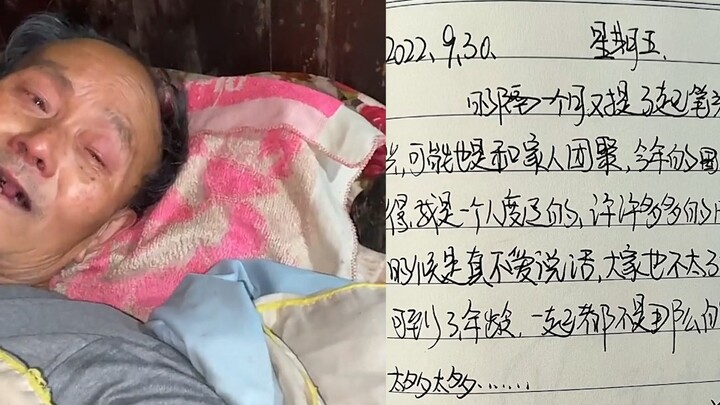 2022.9.30. 星期五.
时隔一个月又提了起笔
可能也是和家人团聚,今年的国
得,我是一个人度过的,许许多多的
时候是真不爱说话,大家也不太
可到了年龄,一起都不是那么
太多太多......